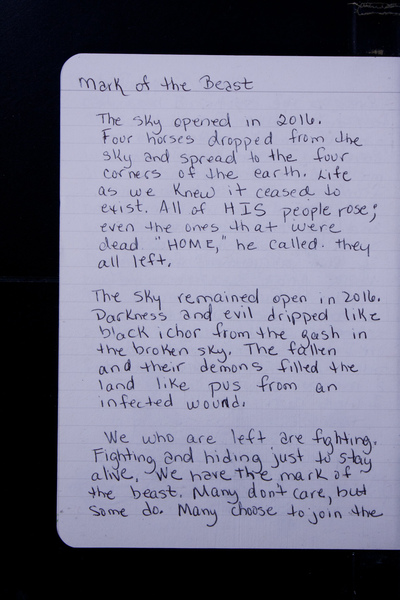 Mark of the Beast
The sky opened in 2016.
Four horses dropped from the
sky and spread to the four
corners of the earth. Life
as we knew it ceased to
exist. All of HIS people rose;
even the ones that were
dead. "HOME," he called. they
all left.
The sky remained open in 2016.
Darkness and evil dripped like
black ichor from the gash in
the broken sky. The fallen
and their demons filled the
land like pus from an
infected wound.
We who are left are fighting.
Fighting and hiding just to stay
alive. We have the mark of
the beast. Many don't care, but
some do. Many choose to join the